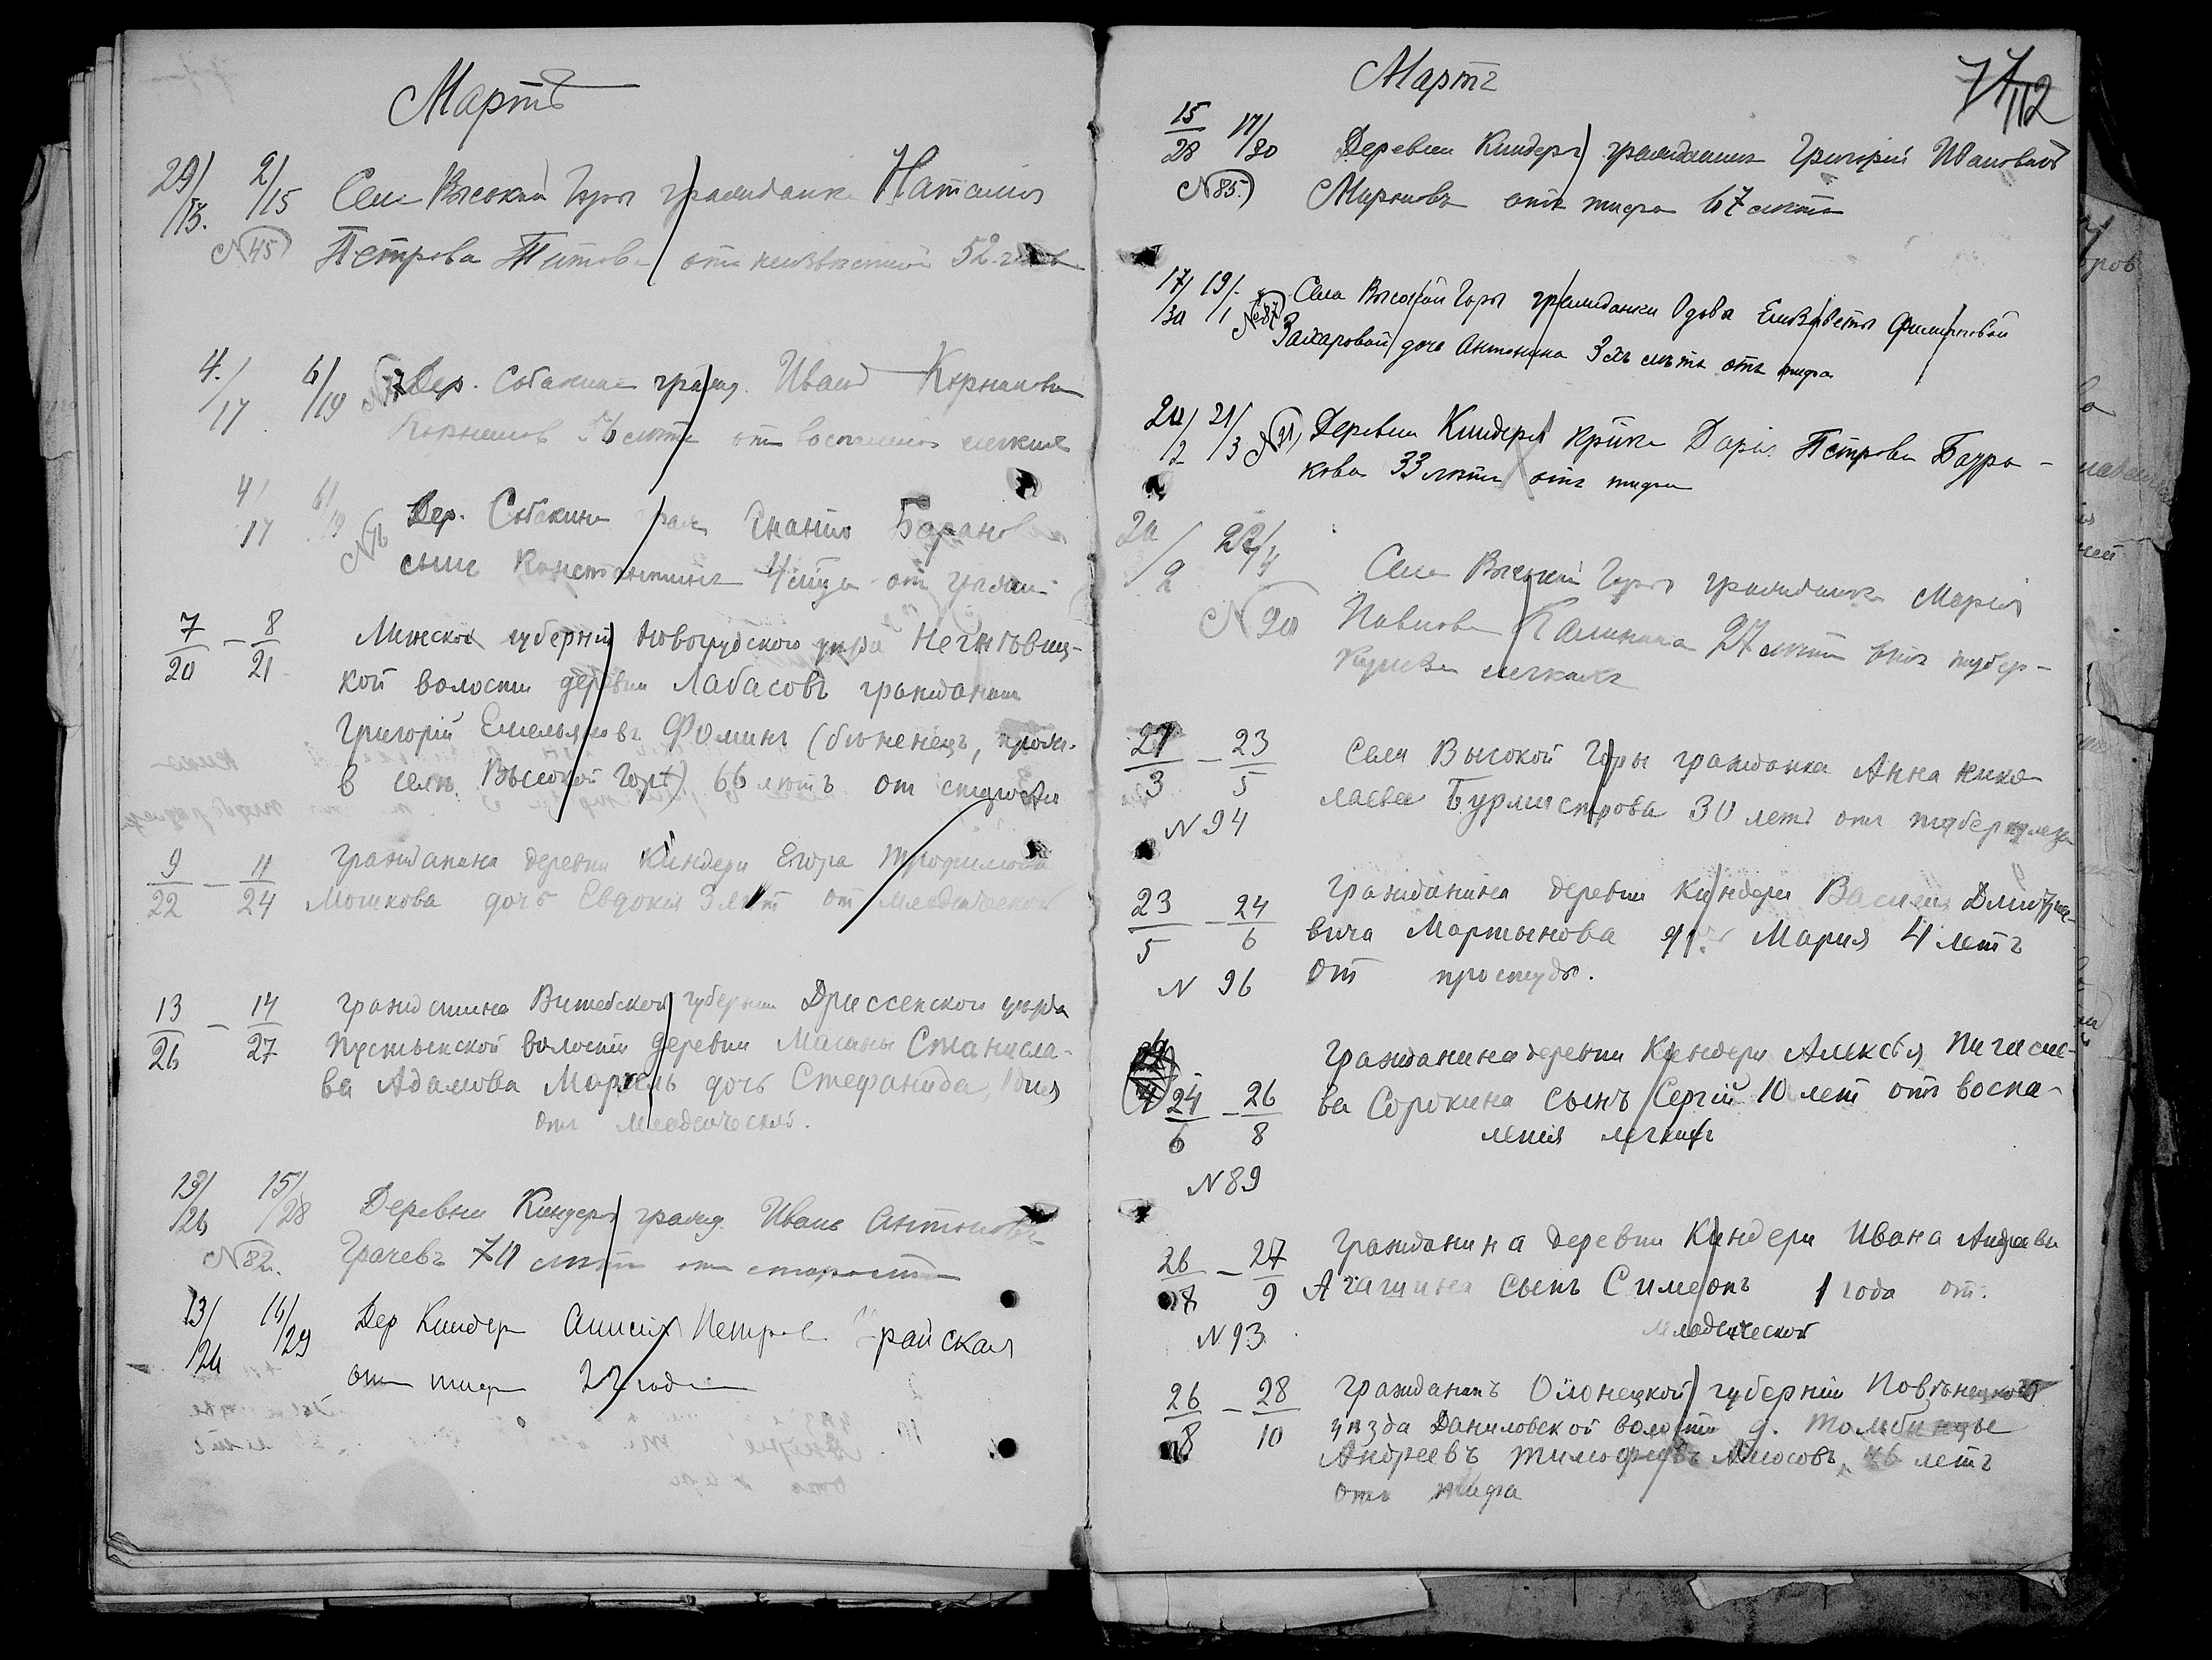 Мартъ
29/13. 2/15 Села Высокой Горы гражданка Наталия
N 45 Петрова Титова от неизвестной 52 годов
4/17 6/19 Дер. Собакина гражд. Иванъ Корнилов
Корнилов лѣтъ от воспаления легких
4/17 6/19 Дер. Собакина Игнатія Баранова
N 76 сынъ Константинъ 4 мѣсяца от
7/20 – 8/21 Минской губерніи Новогрудского уезда Негнѣвиц-
кой волости деревни Лабасовъ гражданин
Григорій Емельяновъ Фоминъ (бѣженецъ, прож.
в селѣ Высокой Горѣ) 66 лѣтъ от старости
9/22 – 11/24 Гражданина деревни Киндери Егора Трофимова
Мошкова дочь Евдокия 3 лѣт от младенческой
13/26 – 14/27 гражданина Витебской губернии Дриссенского уезда
Пустынской волости деревни Масаны Станисла-
ва Адамова дочь Стефанида, 1 дня
отъ младенческой.
13/26 15/28 Деревни Киндери гражд. Иванъ Антоновъ
N 82. Грачевъ 70 лѣтъ от старости
13/26 16/29 Дер Киндери Анисия Петрова Грайская
от тифа 22 года
Мартъ
77 112
15/28 17/30 Деревни Киндери гражданинъ Григорій Ивановичъ
N 85. Мироновъ отъ тифа 67 лѣтъ
17/30 19/1 N 87 Села Высокой Горы гражданки вдова Елизаветы Филипповой
Захаровой дочь Антонина 3хъ лѣтъ отъ тифа
20/2 21/3 N 91 Деревни Киндери кр-ка Дарія Петрова Баура-
кова 33 лѣтъ отъ тифа
20/2 22/4 Села Высокой Горы гражданка Мария
N 90 Павлова Калинина 27 лѣтъ отъ тубер-
кулеза легкихъ
21/3 – 23/5 Села Высокой Горы гражданка Анна Нико-
лаева Бурмистрова 30 летъ отъ туберкулеза
N 94
23/5 – 24/6 Гражданина деревни Киндери Василия Дмитрие-
вича Мартынова дочь Мария 4 летъ
N 96 от простуды.
24/6 – 26/8 Гражданина деревни Киндери Алексѣя
ва Сорокина сынъ Сергій 10 лет отъ воспа-
ления легкихъ
N 89
26/8 – 27/9 Гражданина деревни Киндери Ивана Андреева
Агашина сынъ Симеонъ 1 года от.
N 93. младенческой
26/8 – 28/10 Гражданинъ Олонецкой губерніи Повѣнецкого
уѣзда Даниловской волости д.
Андреевъ Тимофеевъ Амосовъ 46 летъ
отъ тифа